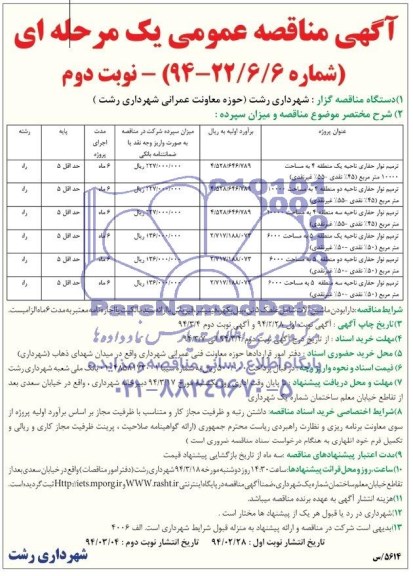 آگهی مناقصه عمومی یک مرحله ای
(شماره ۹۴-۲۲/۶/۶) - نوبت دوم
۱) دستگاه مناقصه گزار : شهرداری رشت (حوزه معاونت عمرانی شهرداری رشت )
۲) شرح مختصر موضوع مناقصه و میزان سپرده :
عنوان پروژه	برآورد اولیه به ریال	میزان سپرده شرکت در مناقصه به صورت واریز وجه نقد یا ضمانتنامه بانکی	مدت اجرای پروژه	پایه	رشته
ترمیم نوار حفاری ناحیه یک منطقه ۴ به مساحت ۱۰۰۰۰ متر مربع (۴۵٪ نقدی -۵۵٪ غیرنقدی)	۴/۵۲۸/۶۴۶/۷۸۹	۲۲۷/۰۰۰/۰۰۰ ریال	۶ ماه	حداقل ۵	راه
ترمیم نوار حفاری ناحیه دو منطقه ۴ به مساحت ۱۰۰۰۰ متر مربع (۴۵٪ نقدی -۵۵٪ غیرنقدی)	۴/۵۲۸/۶۴۶/۷۸۹	۲۲۷/۰۰۰/۰۰۰ ریال	۶ ماه	حداقل ۵	راه
متر مربع (۴۵٪ نقدی -۵۵٪ غیرنقدی)	۴/۵۲۸/۶۴۶/۷۸۹	۲۲۷/۰۰۰/۰۰۰ ریال	۶ ماه	حداقل ۵	راه
ترمیم نوار حفاری ناحیه یک منطقه ۵ به مساحت ۶۰۰۰ متر مربع (۵۰٪ نقدی -۵۰٪ غیرنقدی)	۲/۷۱۷/۱۸۸/۰۷۴	۱۳۶/۰۰۰/۰۰۰ ریال	۶ ماه	حداقل ۵	راه
ترمیم نوار حفاری ناحیه دو منطقه ۵ به مساحت ۶۰۰۰ متر مربع (۵۰٪ نقدی -۵۰٪ غیرنقدی)	۱۳۶/۰۰۰/۰۰۰ ریال	۶ ماه	حداقل ۵	راه
متر مربع (۵۰٪ نقدی -۵۰٪ غیرنقدی)	۱۳۶/۰۰۰/۰۰۰ ریال	۶ ماه	حداقل ۵	راه
شرایط مناقصه:
۳) تاریخ چاپ آگهی : آگهی نوبت اول ۹۴/۲/۲۸ و آگهی نوبت دوم ۹۴/۳/۴
۴) مهلت خرید اسناد : از تاریخ درج آگهی نوبت
۵) محل خرید حضوری اسناد : دفتر امور قراردادها حوزه معاونت فنی عمرانی شهرداری واقع در میدان شهدای ذهاب (شهرداری)
۶) قیمت اسناد و نحوه واریز وجه بانک ملی شعبه شهرداری رشت
۷) مهلت و محل دریافت پیشنهاد : تا پایان وقت اداری دبیرخانه شهرداری ، واقع در خیابان سعدی بعد از تقاطع خیابان معلم ساختمان شماره یک شهرداری
۸) شرایط اختصاصی خرید اسناد مناقصه: داشتن رتبه و ظرفیت مجاز کار و متناسب با ظرفیت مجاز بر اساس برآورد اولیه پروژه از
سوی معاونت برنامه ریزی و نظارت راهبردی ریاست محترم جمهوری (ارائه گواهینامه صلاحیت ، پرینت ظرفیت مجاز کاری و ریالی و
تکمیل فرم خود اظهاری به هنگام درخواست اسناد مناقصه ضروری است )
۹) مدت اعتبار پیشنهادهای مناقصه سه ماه از تاریخ بازگشایی پیشنهاد قیمت
۱۰) ساعت، روز و محل قرائت پیشنهادها: ساعت ۱۴:۳۰ روز دوشنبه مورخه ۹۴/۳/۱۸ شهرداری رشت (دفتر امور مناقصات) واقع در خیابان سعدی بعد از
تقاطع خیابان معلم ساختمان شماره یک شهرداری، ضمنا آگهی مناقصه در پایگاه اینترنتی Http://iets.mporg.ir و WWW.rasht.ir ثبت گردیده است.
۱۱) هزینه انتشار آگهی به عهده برنده مناقصه میباشد.
۱۲) شهرداری در رد یا قبول هر یک از پیشنهاد ها مختار است .
۱۳) بدیهی است شرکت در مناقصه و ارائه پیشنهاد به منزله قبول شرایط شهرداری است. الف ۴۰۰۶
تاریخ انتشار نوبت اول : ۹۴/۰۲/۲۸ تاریخ انتشار نوبت دوم : ۹۴/۰۳/۰۴
۵۶۱۴/س
شهرداری رشت
ParsNamadData
پایگاه اطلاع رسانی مناقصه و مزایده
۰۲۱-۸۸۳۴۹۶۷۰-۵